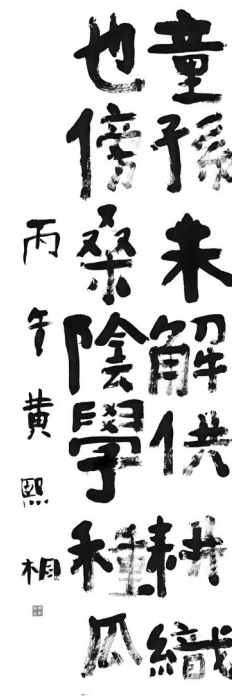 童孫未解供耕織
也傍桑陰學種瓜
丙午黃熙桐